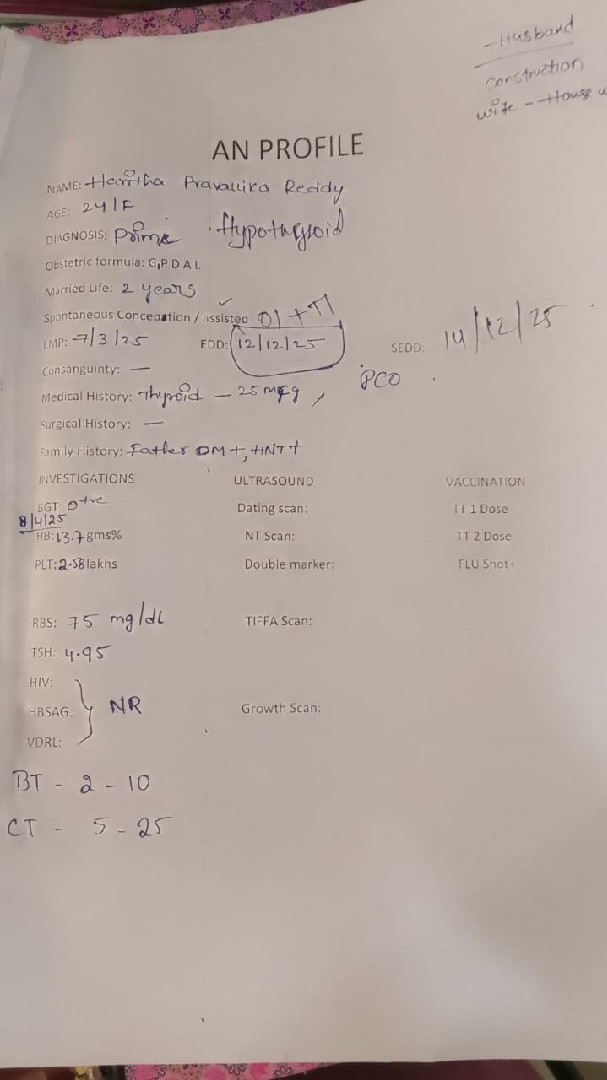 Husband
construction
wife - House
AN PROFILE
NAME: Haritha Pravallika Reddy
AGE: 24/F
DIAGNOSIS: Prime . Hypothyroid
Obstetric formula: G,P D A L
Married Life: 2 years
Spontaneous Conception / assisted OI + TI
LMP: 7/3/25 EDD: 12/12/25 SEDD: 14/12/25
Consanguinty: — PCO
Medical History: Thyroid - 25 mcg,
Surgical History: —
Family History: Father DM+, HNT+
INVESTIGATIONS ULTRASOUND VACCINATION
BGT: O+ve Dating scan: TT 1 Dose
8/4/25
HB: 13.7 gms% NT Scan: TT 2 Dose
PLT: 2.58 lakhs Double marker: FLU Shot:
RBS: 75 mg/dL TIFFA Scan:
TSH: 4.95
HIV:
HBSAG: NR Growth Scan:
VDRL:
BT - 2 - 10
CT - 5 - 25